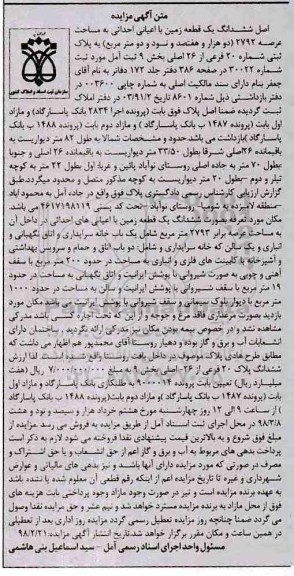 متن آگهی مزایده
اصل ششدانگ یک قطعه زمین با اعیانی احداثی به مساحت
عرصه ۲۷۹۲ (دو هزار و هفتصد و نود و دو متر مربع) به پلاک
ثبتی شماره ۲۰ فرعی از ۲۶ اصلی بخش ۹ ثبت آمل مورد ثبت
۳۰۰۲۲ در صفحه ۳۸۶ دفتر جلد ۱۷۲ دفاتر به نام آقای
جعفر بنام دارای سند مالکیت اصلی به شماره چاپی ۰۰۳۶۰۰ در
دفتر بازداشتی ذیل شماره ۸۶۰۱ تاریخ ۰۳/۹۱/۲ در دفتر املاک
ثبت گردیده ضمنا اصل پلاک فوق بابت (پرونده اجرا ۲۸۳۴ بانک پاسارگاد) و مازاد
اول بابت (پرونده ۱۴۸۷ ب بانک پاسارگاد) و مازاد دوم بابت (پرونده ۱۴۸۸ ب بانک
پاسارگاد) بازداشت می باشد حدود و مشخصات شمالا به طول ۸۲ متر دیواریست به
باقیمانده ۲۶ اصلی شرقا بطول ۲۷/۵۰ متر دیواریست به باقیمانده ۲۶ اصلی و جنوبا
بطول ۷۰ متر به جاده اصلی روستای نوآباد پائین و غربا: اول بطول ۲۲ متر به کوچه
تیلر و دوم بطول ۲۰ متر دیواریست به کوچه مذکور متصل و محدود میگردد طبق
گزارش ارزیابی کارشناس رسمی دادگستری پلاک فوق واقع در جاده آمل به محمودآباد
منطقه لاریزده به شومیا- روستای نوآباد -تحت کد پستی ۴۶۱۷۱۹۸۱۱۹ می باشد.
مکان مورد تعرفه بصورت ششدانگ یک قطعه زمین با اعیانی های احداثی در داخل آن
به مساحت عرصه برابر ۲۷۹۲ متر مربع شامل یک باب خانه سرایداری و اتاق نگهبانی و
انباری و یک سالن که خانه سرایداری و شامل: دو باب اتاق و حمام و سرویس بهداشتی
و آشپزخانه با کابینت های فلزی و انباری به مساحت در حدود ۲۰۰ متر مربع با سقف
آهنی و چوبی به صورت شیروانی با پوشش ایرانیت و اتاق نگهبانی به مساحت در حدود
۱۹ متر مربع با سقف شیروانی با پوشش ایرانیت و سالن به مساحت در حدود ۱۰۰۰
متر مربع با دیوار بلوک سیمانی و سقف شیروانی با پوشش ایرانیت می باشد مکان مورد
بازدید بصورت مرغداری فاقد مرغ و جوجه و از این که تحت اجاره می باشد مدرکی
مشاهده نشد و در خصوص بیمه بودن مکان نیز مدرکی ارائه نگردید . ساختمان دارای
انشعابات آب و برق و گاز بوده و دهیار روستا آقای محمدپور هم اظهار می داشت که
مطابق طرح هادی پلاک موصوف در داخل بافت روستا واقع شده است. لذا ارزش
ششدانگ پلاک ۲۰ فرعی از ۲۶ اصلی بخش ۹ به مبلغ ۷/۰۰۰/۰۰۰/۰۰۰ ریال (هفت
میلیارد ریال) تعیین بابت پرونده ۹۰۰۰۰۱۴ به طلبکاری بانک پاسارگاد و مازاد اول
بابت (پرونده ۱۴۸۷ ب بانک پاسارگاد) و مازاد دوم بابت (پرونده ۱۴۸۸ ب بانک پاسارگاد
) از ساعت ۹ الی ۱۲ روز چهارشنبه مورخ هشتم خرداد هزار و سیصد و نود و هشت
۹۸/۳/۸ در محل اجرای ثبت اسناد آمل از طریق مزایده به فروش می رسد .مزایده از
مبلغ فوق شروع و به بالاترین قیمت پیشنهادی نقدا فروخته می شود لازم به ذکر است
پرداخت بدهی های مربوط به آب و برق و گاز اعم از حق انشعاب و یا حق اشتراک و
مصرف در صورتی که مورد مزایده دارای آنها باشد و نیز بدهی های مالیاتی و عوارض
شهرداری و غیره تا تاریخ مزایده اعم از اینکه رقم قطعی آن معلوم شده یا نشده باشد
به عهده برنده مزایده است و نیز در صورت وجود مازاد وجوه پرداختی بابت هزینه های
فوق از محل مازاد به برنده مزایده مسترد خواهد شد و نیم عشر و حق مزایده نقدا وصول
می گردد ضمنا چنانچه روز مزایده تعطیل رسمی گردد مزایده روز اداری بعد از تعطیلی
در همین ساعت و مکان مقرر برگزار خواهد شد.تاریخ انتشار آگهی مزایده: ۹۸/۲/۲۱
مسئول واحد اجرای اسناد رسمی آمل - سید اسماعیل بنی هاشمی
سازمان ثبت اسناد و املاک کشور